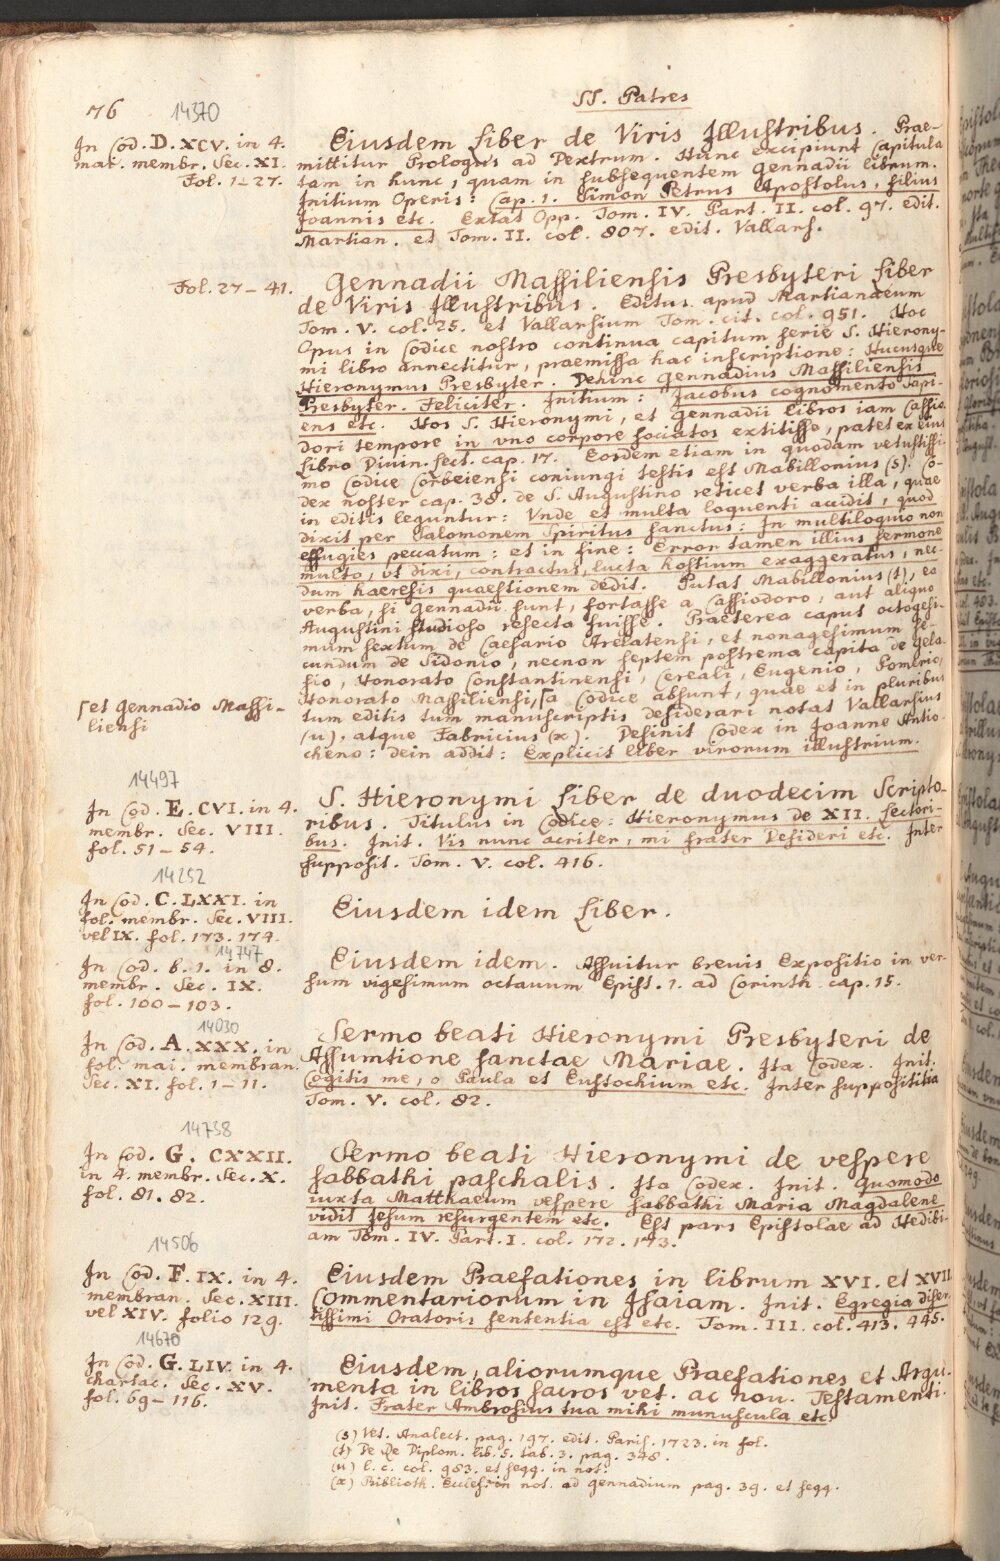 76
14370
SS. Patres
In Cod. D. XCV. in 4.
mai. membr. Sec. XI.
Fol. 1–27.
Eiusdem Liber de Viris Illustribus. Prae-
mittitur Prologus ad Dextrum. Hunc excipiunt Capitula
tam in hunc, quam in subsequentem Gennadii librum.
Initium Operis: Cap. 1. Simon Petrus Apostolus, filius
Joannis etc. Extat Opp. Tom. IV. Part. II. col. 97. edit.
Martian. et Tom. II. col. 807. edit. Vallars.
Fol. 27–41.
Gennadii Massiliensis Presbyteri Liber
de Viris Illustribus. Editus apud Martianaeum
Tom. V. col. 25. et Vallarsium Tom. cit. col. 951. Hoc
Opus in Codice nostro continua capitum serie S. Hierony-
mi libro annectitur, praemissa hac inscriptione: Hucusque
Hieronymus Presbyter. Dehinc Gennadius Massiliensis
Presbyter. Feliciter. Initium: Jacobus cognomento Sapi-
ens etc. Hos S. Hieronymi, et Gennadii libros iam Cassio-
dori tempore in vno corpore sociatos extitisse, patet ex eius
Libro Divin. Lect. cap. 17. Eosdem etiam in quodam vetustissi-
mo Codice Corbeiensi coniungi testis est Mabillonius (s). Co-
dex noster cap. 38. de S. Augustino reticet verba illa, quae
in editis leguntur: Vnde et multa loquenti accidit, quod
dixit per Salomonem Spiritus sanctus: In multiloquio non
effugies peccatum: et in fine: Error tamen illius sermone
multo, vt dixi, contractus, lucta hostium exaggeratus, nec-
dum haeresis quaestionem dedit. Putat Mabillonius (t), ea
verba, si Gennadii sunt, fortasse a Cassiodoro, aut aliquo
Augustini studioso resecta fuisse. Praeterea caput octogesi-
mum sextum de Caesario Arelatensi, et nonagesimum se-
cundum de Sidonio, necnon septem postrema capita de Gela-
sio, Honorato Constantinensi, Cereali, Eugenio, Pomerio,
Honorato Massiliensi, ⌈a Codice absunt, quae et in pluribus
⌈et Gennadio Massi-
liensi
tum editis tum manuscriptis desiderari notat Vallarsius
(u), atque Fabricius (x). Desinit Codex in Joanne Antio-
cheno: dein addit: Explicit liber virorum illustrium.
14497
In Cod. E. CVI. in 4.
membr. Sec. VIII.
fol. 51–54.
S. Hieronymi Liber de duodecim Scripto-
ribus. Titulus in Codice: Hieronymus de XII. Lectori-
bus. Init. Vis nunc acriter, mi frater Desideri etc. Inter
supposit. Tom. V. col. 416.
14252
In Cod. C. LXXI. in
fol. membr. Sec. VIII.
vel IX. fol. 173. 174.
Eiusdem idem Liber.
14747
In Cod. b. 1. in 8.
membr. Sec. IX.
fol. 100–103.
Eiusdem idem. Assuitur brevis Expositio in ver-
sum vigesimum octauum Epist. 1. ad Corinth. cap. 15.
14030
In Cod. A. XXX. in
fol. mai. membran.
Sec. XI. fol. 1–11.
Sermo beati Hieronymi Presbyteri de
Assumtione sanctae Mariae. Ita Codex. Init.
Cogitis me, o Paula et Eustochium etc. Inter supposititia
Tom. V. col. 82.
14738
In Cod. G. CXXII.
in 4. membr. Sec. X.
fol. 81. 82.
Sermo beati Hieronymi de vespere
sabbathi paschalis. Ita Codex. Init. Quomodo
iuxta Matthaeum vespere sabbathi Maria Magdalene
vidit Jesum resurgentem etc. Est pars Epistolae ad Hedibi-
am Tom. IV. Part. I. col. 172. 173.
14506
In Cod. F. IX. in 4.
membran. Sec. XIII.
vel XIV. folio 129.
Eiusdem Praefationes in librum XVI. et XVII.
Commentariorum in Isaiam. Init. Egregia diser-
tissimi Oratoris sententia est etc. Tom. III. col. 413. 445.
14670
In Cod. G. LIV. in 4.
chartac. Sec. XV.
fol. 69–116.
Eiusdem, aliorumque Praefationes et Argu-
menta in libros sacros vet. ac nou. Testamenti.
Init. Frater Ambrosius tua mihi munuscula etc.
(s) Vet. Analect. pag. 197. edit. Paris. 1723. in fol.
(t) De Re Diplom. lib. 5. tab. 3. pag. 348.
(u) l. c. col. 983. et seqq. in not.
(x) Biblioth. Eccles. in not. ad Gennadium pag. 39. et seqq.